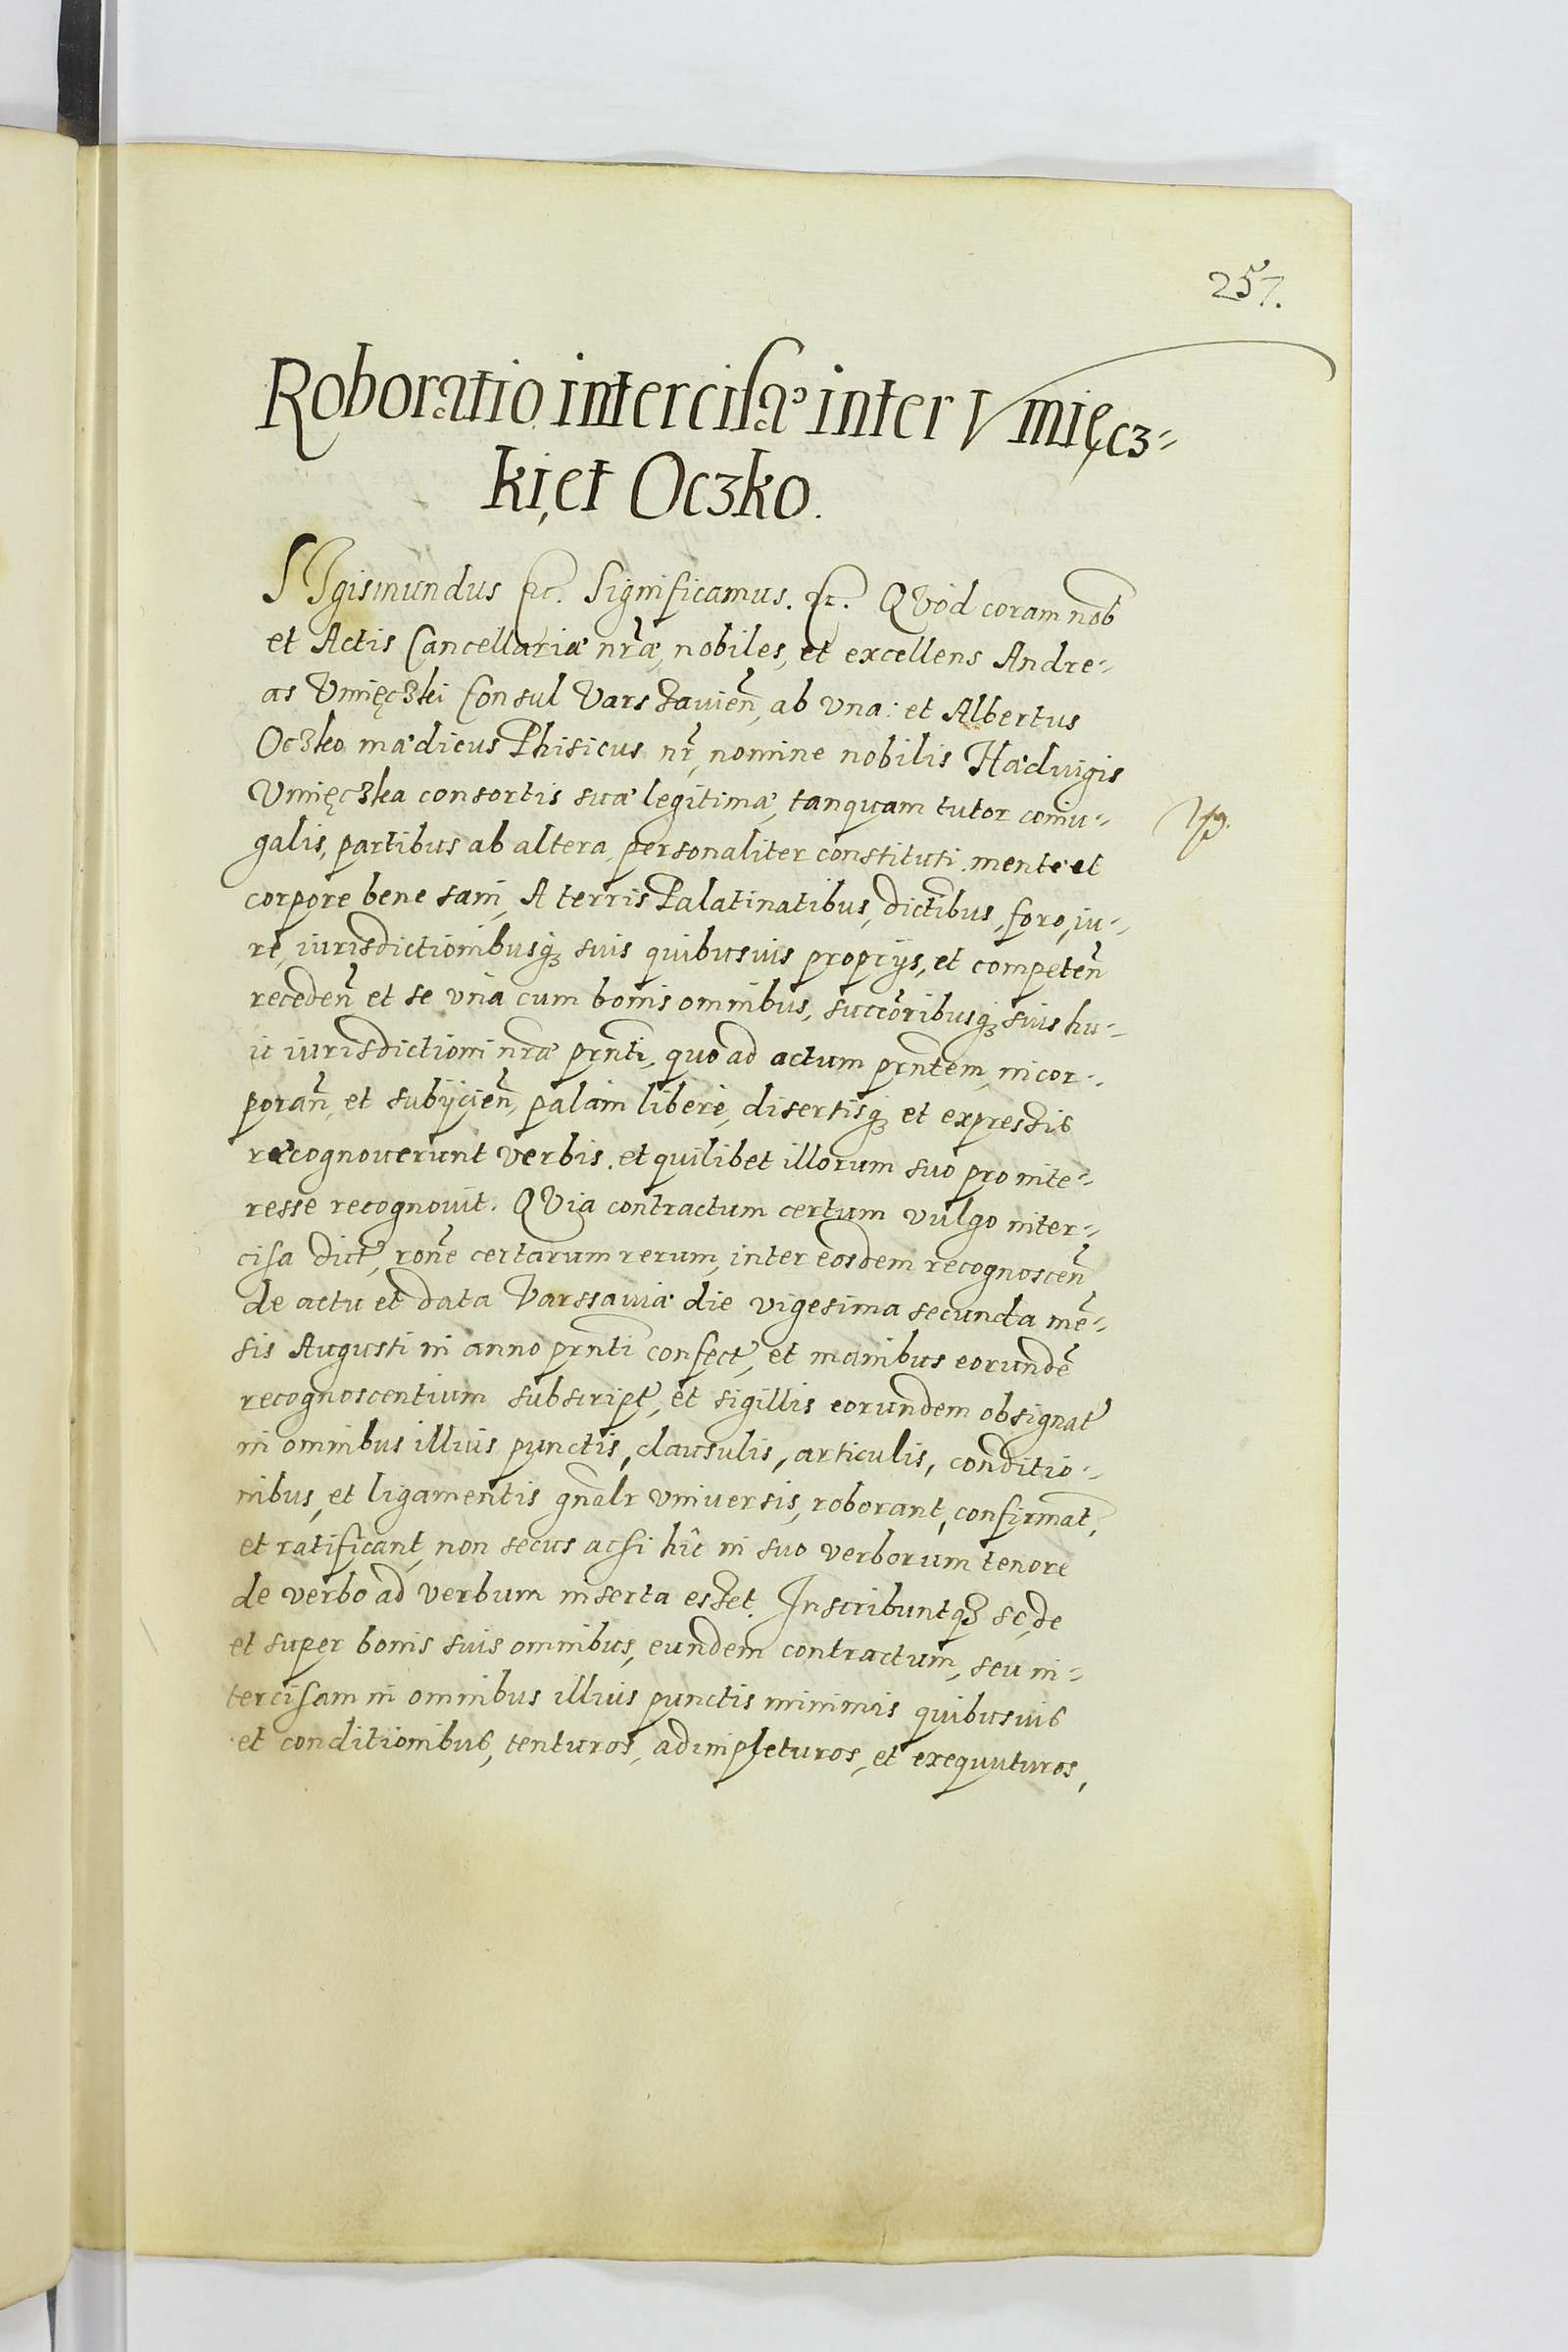 257.
Roboratio intercisæ inter Vmięcz=
ki, et Oczko.
SIgismundus etc. Significamus. etc. QVòd coram nob̃
et Actis Cancellariæ nr̃æ, nobiles, et excellens Andre=
as Vmięczki Consul Varssavieñ, ab vna: et Albertus
Oczko mædicus Phisicus nr̃, nomine nobilis Hæduigis
Vmięczka consortis suæ legitimæ, tanquam tutor coniu=
galis, partibus ab altera, personaliter constituti mente et
corpore bene sani, A terris Palatinatibus, dictibus, foro, iu=
re, iurisdictionibusqȝ suis quibusuis proprijs, et competeñ
recedeñ et se vnà cum bonis omnibus, succoribusqȝ suis hu=
ic iurisdictioni nr̃æ prnti, quo ad actum prntem, incor=
porañ, et subijcieñ, palàm liberè, disertisqȝ et expressis
recognouerunt verbis. et quilibet illorum suo pro inte=
resse recognouit. QVia contractum certum vulgo inter=
cisa dict, rone certarum rerum, inter eosdem recognosceñ
de actu et data Varssauiæ die vigesima secunda mẽ=
sis Augusti in anno prnti confect, et manibus eorundẽ
recognoscentium subscript, et sigillis eorundem obsignat
in omnibus illius punctis, clausulis, articulis, conditio=
nibus, et ligamentis gnalr vniuersis, roborant, confirmat,
et ratificant, non secus acsi hîc in suo verborum tenore
de verbo ad verbum inserta esset. Inscribuntqȝ se, de
et super bonis suis omnibus, eundem contractum, seu in=
tercisam in omnibus illius punctis minimis quibusuis
et conditionibus, tenturos, adimpleturos, et exequuturos,